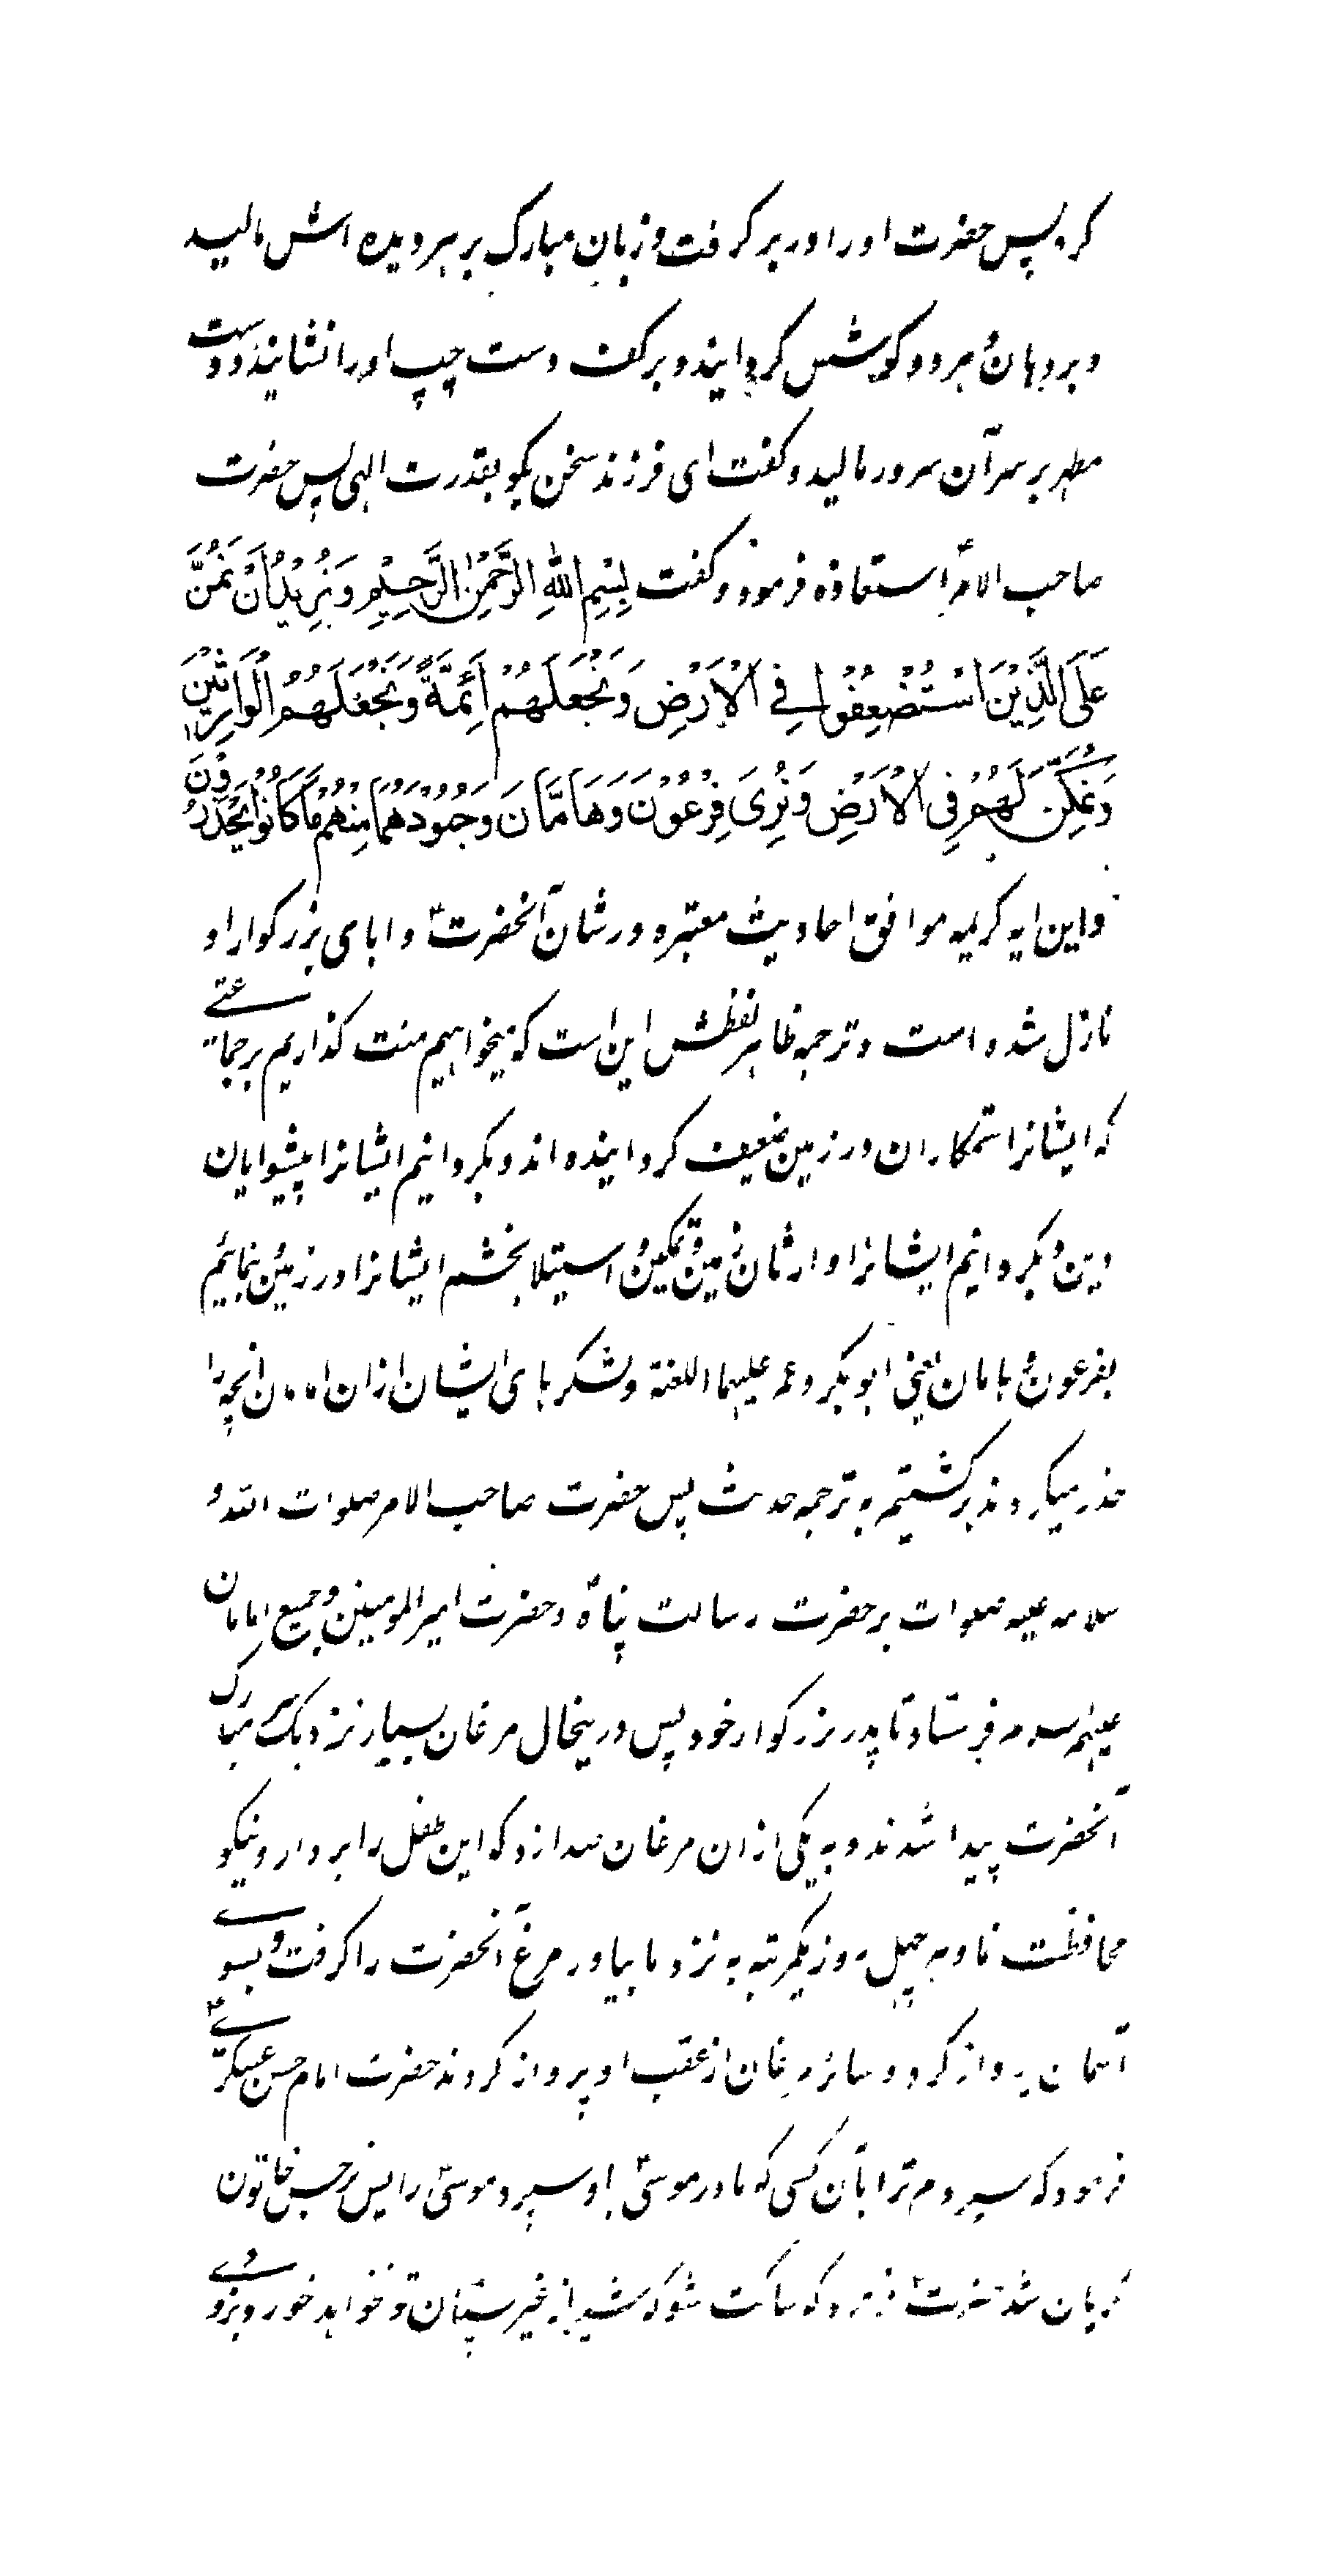 کرد پس حضرت اورا در بر کرفت و زبان مبارک بر هر دو دیده اش مالید
و بر دهان و هر دو کوشش کردانید و بر کف دست چپ اورا نشانید و دست
مطهر بر سر آن سرور مالید و کفت ای فرزند سخن بکو بقدرت الهی پس حضرت
صاحب الامرؑ استعاذه فرمود و کفت بِسْمِ اللهِ الرَّحْمٰنِ الرَّحِیْمِ وَنُرِیْدُ اَنْ نَمُنَّ
عَلَی الَّذِیْنَ اسْتُضْعِفُوْا فِے الْاَرْضِ وَنَجْعَلَهُمْ اَئِمَّةً وَنَجْعَلَهُمُ الْوَارِثِیْنَ
وَنُمَکِّنَ لَهُمْ فِی الْاَرْضِ وَنُرِیَ فِرْعَوْنَ وَهَامَّانَ وَجُنُوْدَهُمَا مِنْهُمْ مَّا کَانُوْا یَحْذَرُوْنَ
و این ایه کریمه موافق احادیث معتبره در شان آنحضرتؑ و ابای بزرکوار او
نازل شده است و ترجمه ظاهر لفظش این است که میخواهیم منت کذاریم بر جماعتے
که ایشانرا ستمکاران در زمین ضعیف کردانیده اند و بکردانیم ایشانرا پیشوایان
دین و بکردانیم ایشانرا وارثان زمین و تمکین و استیلا بخشم ایشانرا در زمین و بنمائیم
بفرعون و هامان یعنی ابو بکر و عمر علیهما اللعنة و لشکرهای ایشان ازان امامان انچه را
حذر میکردند برکشتیم به ترجمه حدیث پس حضرت صاحب الامر صلوات الله و
سلامه علیه صلوات بر حضرت رسالت پناهؐ و حضرت امیر المومنین و جمیع امامان
علیهم سلام فرستاد تا پدر بزرکوار خود پس درینحال مرغان بسیار نزدیک سر مبارک
آنحضرت پیدا شدند و به یکی ازان مرغان صدا زد که این طفل را بردار و نیکو
محافظت نما و بهر چهل روز یکمرتبه به نزد ما بیاور مرغ آنحضرت را کرفت و بسوے
آسمان پرواز کرد و سائر مرغان از عقب او پرواز کردند حضرت امام حسن عسکرےؑ
فرمود که سپردم ترا بآن کسی که مادر موسیٰؑ باو سپرد موسیٰؑ را پس نرجس خاتون
کریان شد حضرتؑ فرمود که ساکت شو که شیر از غیر پستان تو نخواهد خورد و بزودے